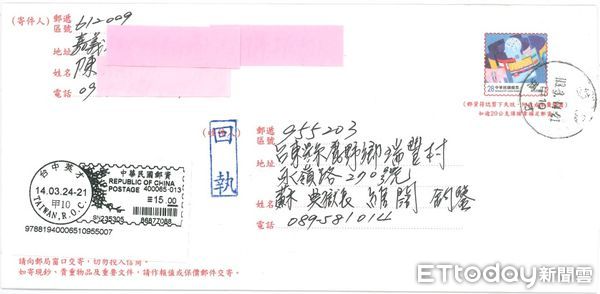 (寄件人)
郵遞區號 612009
地址 嘉義
姓名 陳
電話 09
28
中華民國郵票
28
(收件人)
回執
郵遞區號 955203
地址 台東縣鹿野鄉瑞豐村
永嶺路270號
姓名 蘇
電話 089-581014
台中英才
14.03.24-21
甲10
TAIWAN, R.O.C.
中華民國郵資
REPUBLIC OF CHINA
POSTAGE 400065-013
15.00
9788194000651095 5007
請向郵局窗口交寄，切勿投入信筒。
如寄現鈔、貴重物品及重要文件，請作報值或保價郵件交寄。
ETtoday新聞雲